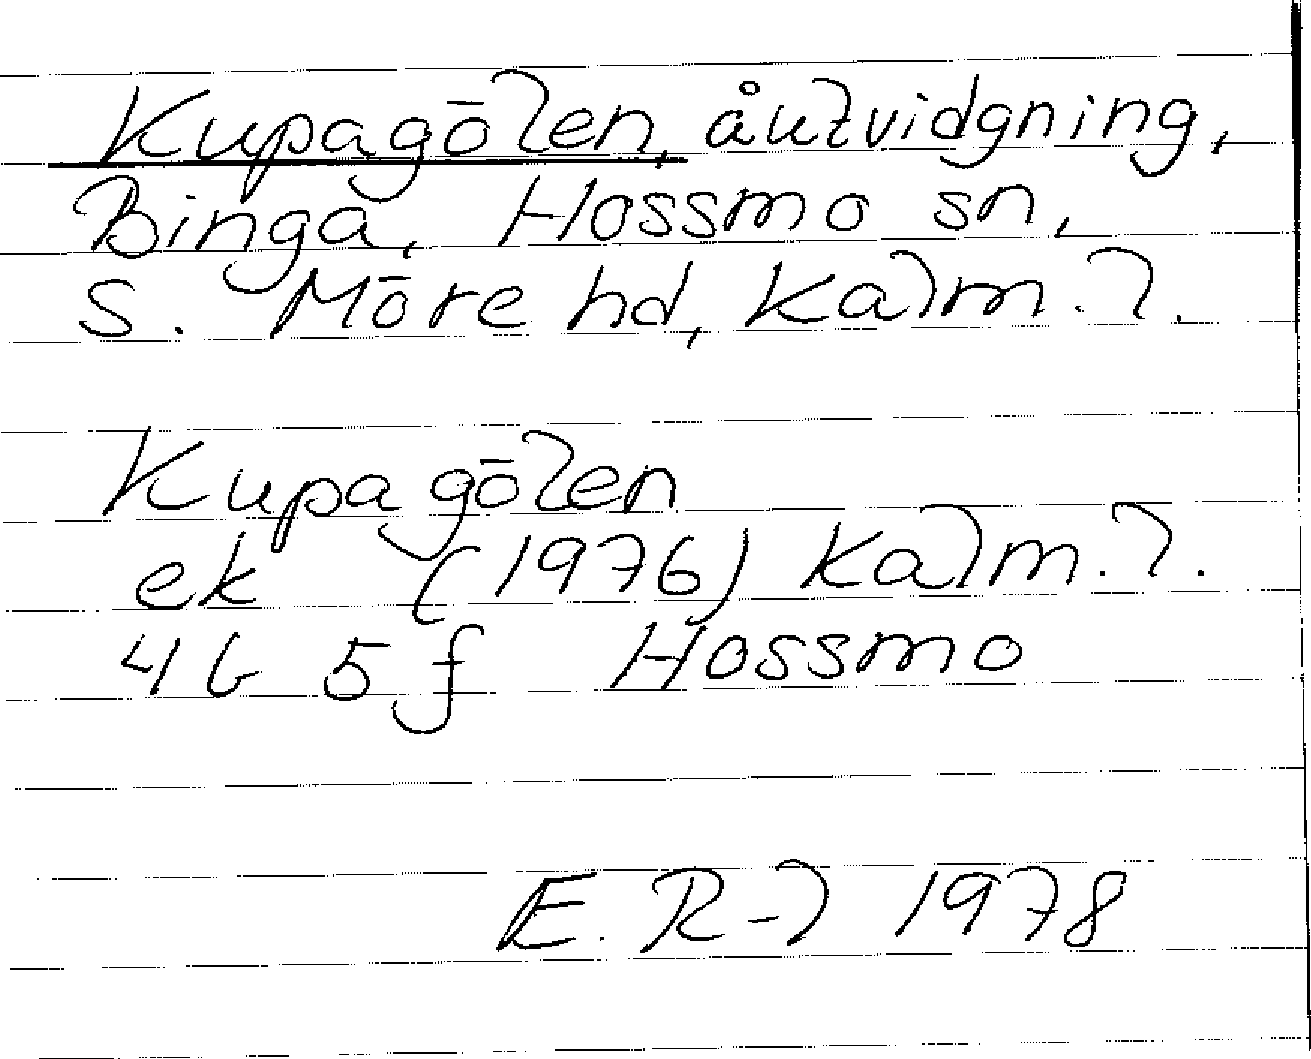 Kupagölen, åutvidgning,
Binga, Hossmo sn,
S. Möre hd, Kalm. l.
Kupagölen
ek (1976) Kalm. l.
4G 5f Hossmo
E. R-l 1978